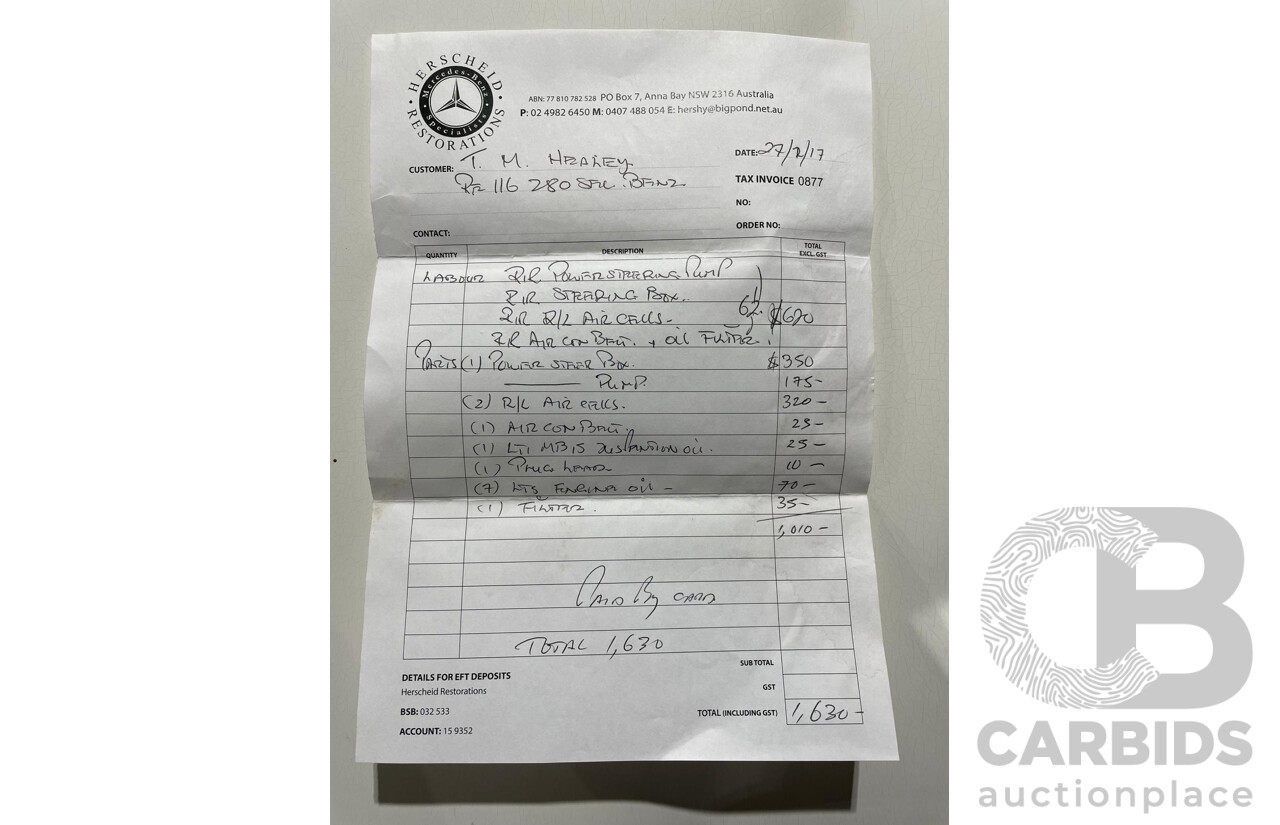 HERSCHEID RESTORATIONS
Mercedes-Benz Specialists
ABN: 77 810 782 528 PO Box 7, Anna Bay NSW 2316 Australia
P: 02 4982 6450 M: 0407 488 054 E: hershy@bigpond.net.au
CUSTOMER: T. M. HEALEY DATE: 27/2/17
RE 116 280 SEL. BENZ TAX INVOICE 0877
NO:
CONTACT: ORDER NO:
QUANTITY DESCRIPTION TOTAL EXCL. GST
LABOUR R/R POWER STEERING PUMP
R/R STEERING BOX.
R/R R/L AIR CELLS- 62. $620
R/R AIR CON BELT. + OIL FILTER.
PARTS (1) POWER STEER BOX. $350
PUMP. 175-
(2) R/L AIR CELLS. 320-
(1) AIR CON BELT. 25-
(1) LTI MB15 SUSPENTION OIL. 25-
(1) PLUG LEAD 10-
(7) LTS ENGINE OIL - 70-
(1) FILTER. 35-
1,010-
PAID By CARD
TOTAL 1,630
DETAILS FOR EFT DEPOSITS SUB TOTAL
Herscheid Restorations GST
BSB: 032 533 TOTAL (INCLUDING GST) 1,630-
ACCOUNT: 15 9352
CB
CARBIDS
auctionplace